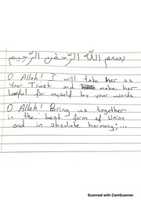 بسم الله الرحمن الرحيم
O Allah! I will take her as
Your Trust and make her
lawful for myself by your words
O Allah! Bring us together
in the best form of union
and in absolute harmony;...
Scanned with CamScanner